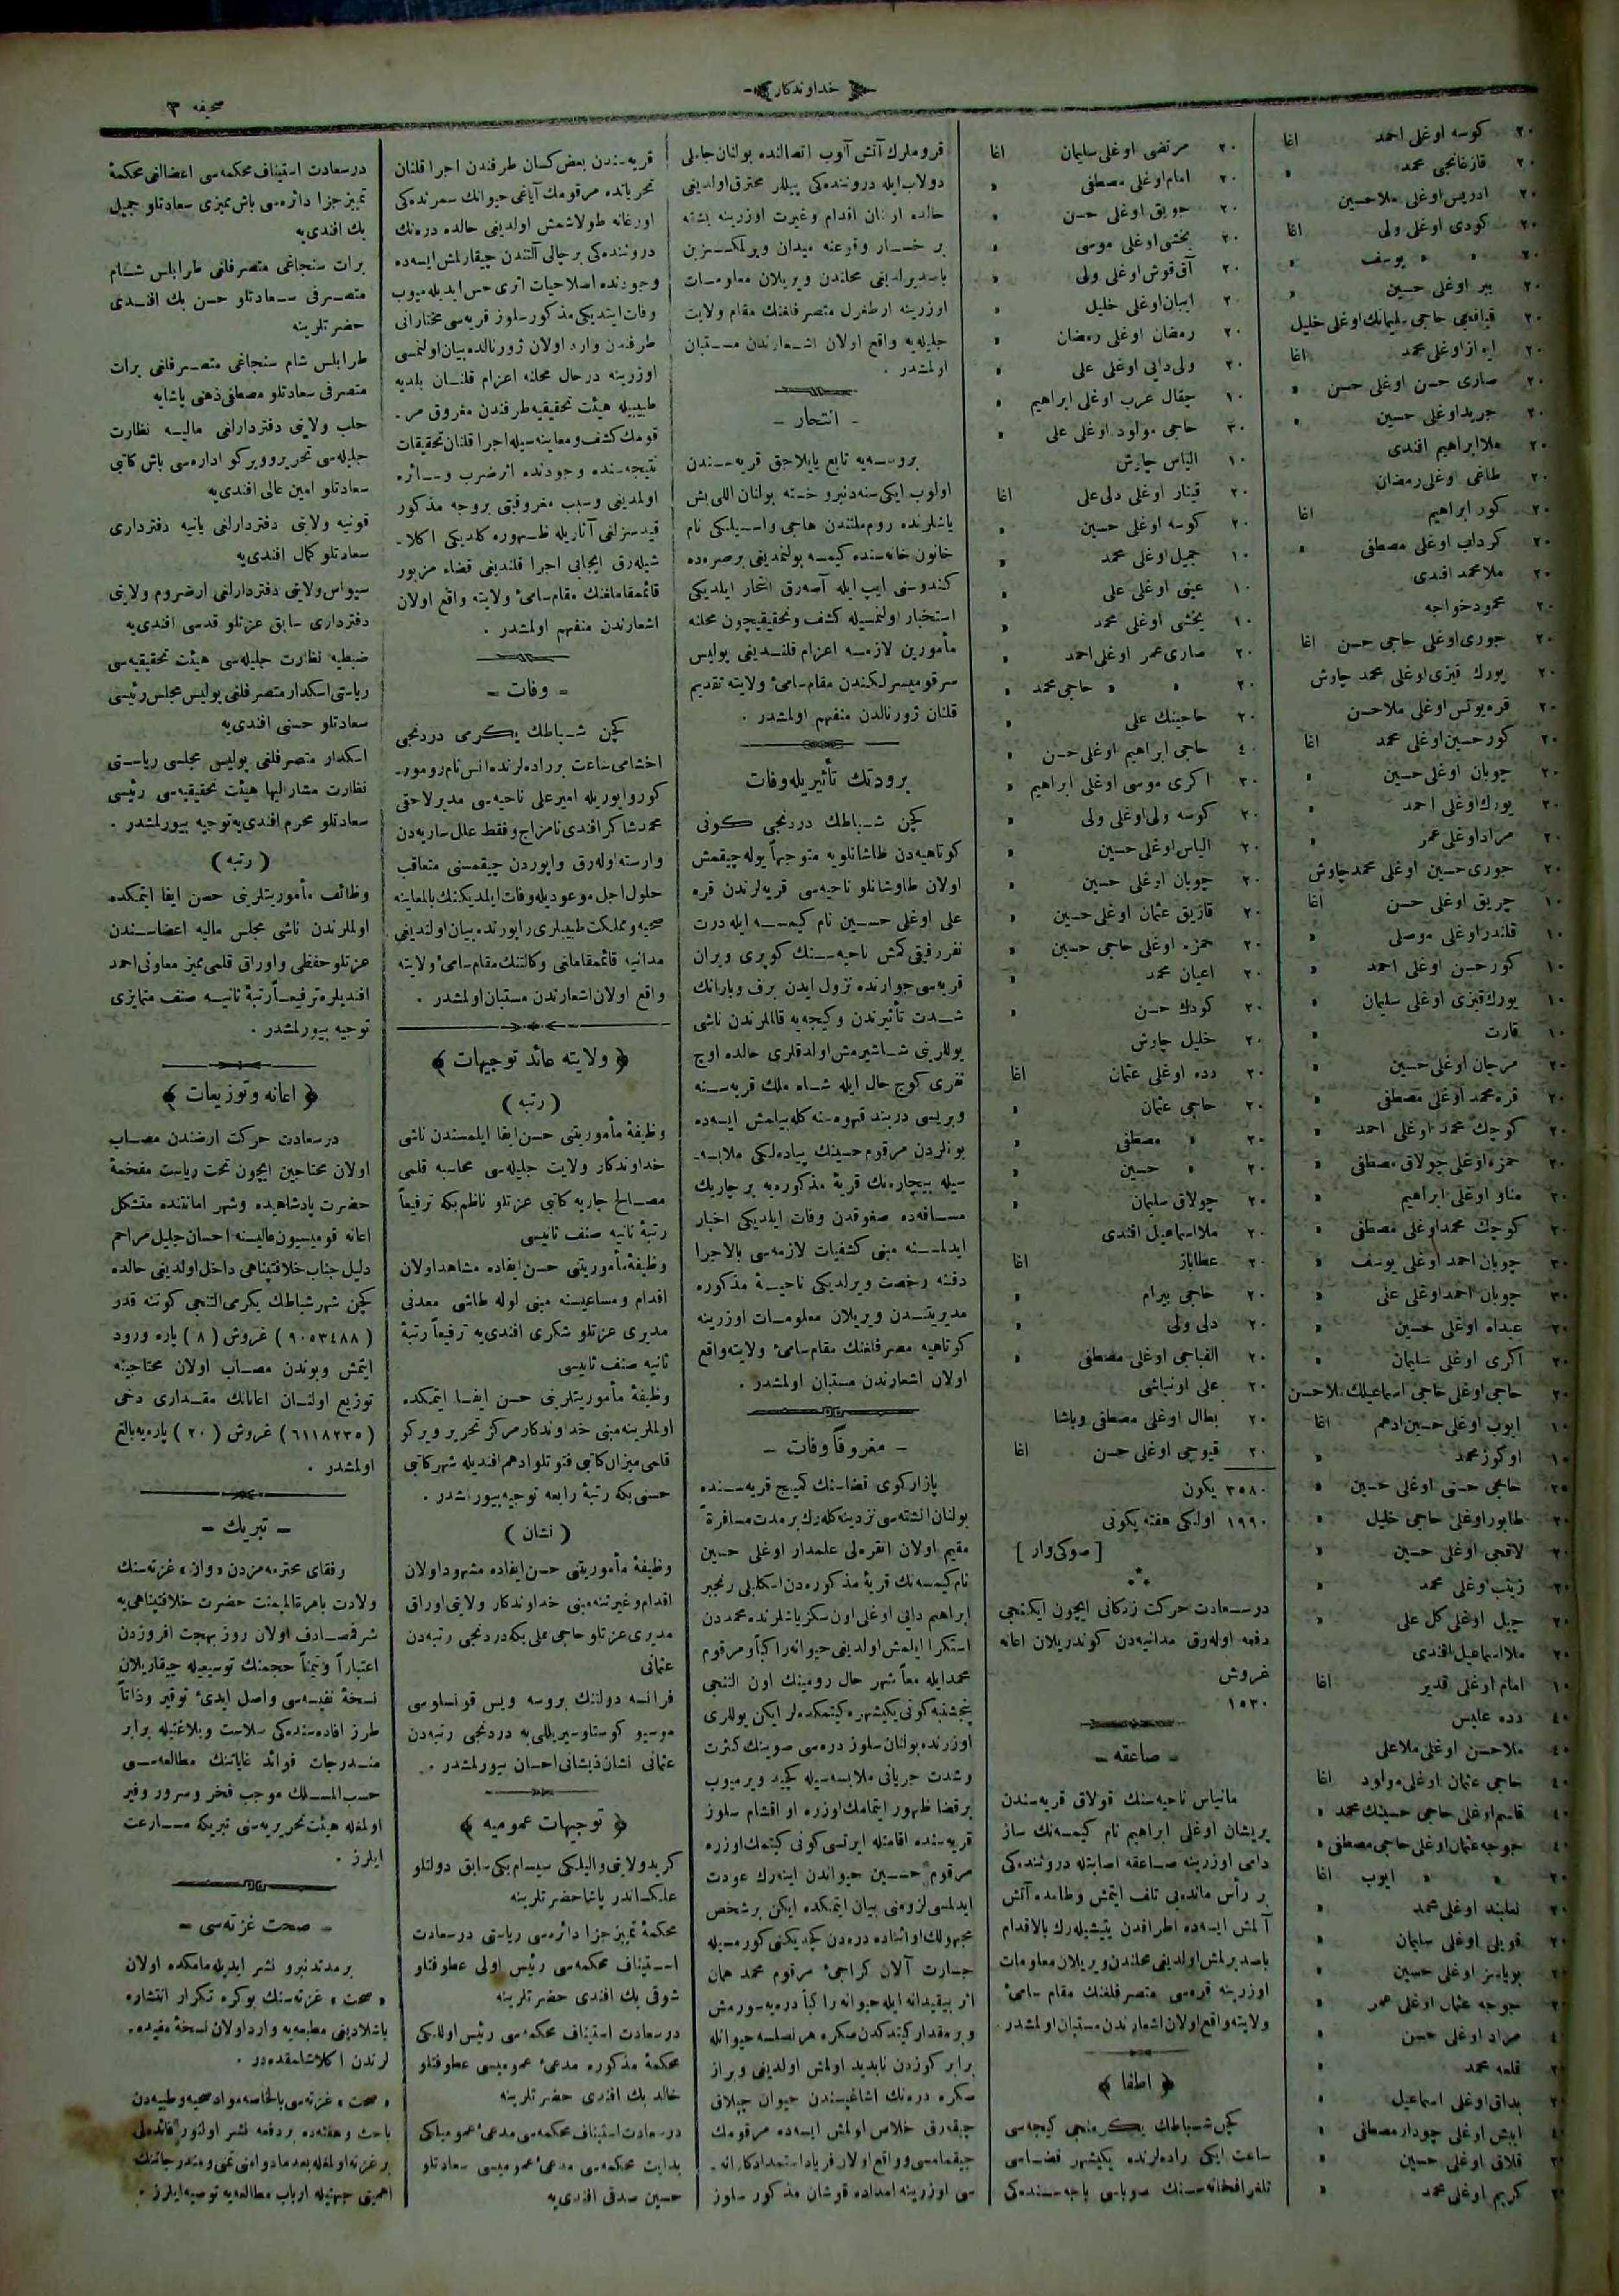 خداوندکار
صحیفه ٣
٢٠ کوسه اوغلی احمد اغا
٢٠ قازغانجی محمد
٢٠ ادریس اوغلی ملا حسین
٢٠ کودی اوغلی ولی اغا
٢٠ » » یوسف »
٢٠ ببر اوغلی حسین »
٢٠ صاری حسن اوغلی حسن »
٢٠ جرید اوغلی حسین »
٢٠ ملا ابراهیم افندی
٢٠ طاغی اوغلی رمضان
٢٠ کور ابراهیم اغا
٢٠ کرداب اوغلی مصطفی »
٢٠ ملا محمد افندی
٢٠ محمود خواجه
٢٠ جوری اوغلی حاجی حسن اغا
٢٠ یورك قیزی اوغلی محمد چاوش
٢٠ قره یونس اوغلی ملا حسن
٢٠ کور حسین اوغلی محمد اغا
٢٠ چوبان اوغلی حسین »
٢٠ یورك اوغلی احمد »
٢٠ مراد اوغلی عمر »
٢٠ جوری حسین اوغلی محمد چاوش
١٠ چریق اوغلی حسن اغا
١٠ قلندر اوغلی موصلی »
١٠ کور حسن اوغلی احمد »
١٠ یورك قیزی اوغلی سلیمان »
١٠ قارت »
٢٠ مرجان اوغلی حسین »
٢٠ قره محمد اوغلی مصطفی »
٢٠ کوچك محمد اوغلی احمد »
٢٠ حمزه اوغلی چولاق مصطفی »
٢٠ مناو اوغلی ابراهیم »
٢٠ کوچك محمد اوغلی مصطفی »
٢٠ چوبان احمد اوغلی یوسف »
٢٠ چوبان احمد اوغلی علی »
٢٠ عبداه اوغلی حسین »
٢٠ اکری اوغلی سلیمان »
١٠ ایوب اوغلی حسین ادهم اغا
١٠ اوکوز محمد »
٢٥ حاجی حسن اوغلی حسین »
٢٠ طابور اوغلی حاجی خلیل »
٢٠ لافجی اوغلی حسین »
٢٠ زینب اوغلی محمد »
٢٠ چیل اوغلی کل علی »
٢٠ ملا اسماعیل افندی
١٠ امام اوغلی قدیر اغا
٤٠ دده علیس
٤٠ ملا حسن اوغلی ملا علی
٤٠ حاجی عثمان اوغلی مولود اغا
٤٠ قاسم اوغلی حاجی حسینك محمد »
٤٠ خوجه عثمان اوغلی حاجی مصطفی »
٢٠ » » ایوب اغا
٢٠ قویلی اوغلی سلیمان »
٢٠ بویاسز اوغلی حسین »
٢٠ خوجه عثمان اوغلی عمر »
٤٠ مراد اوغلی حسن »
٢٠ قلعه محمد »
٢٠ بداق اوغلی اسماعیل »
٤٠ ایبش اوغلی چودار مصطفی »
٢٠ فلاق اوغلی حسین »
٢٠ کریم اوغلی محمد »
٢٠ مرتضی اوغلی سلیمان اغا
٢٠ امام اوغلی مصطفی »
٢٠ جویق اوغلی حسن »
٢٠ بخشی اوغلی موسی »
٢٠ آق قوش اوغلی ولی »
٢٠ ایبان اوغلی خلیل
٢٠ رمضان اوغلی رمضان »
٣٠ ولی دایی اوغلی علی »
١٠ چقال عرب اوغلی ابراهیم »
٣٠ حاجی مولود اوغلی علی »
١٠ الیاس چاوش
٢٠ قینار اوغلی دلی علی اغا
٢٠ کوسه اوغلی حسین »
١٠ جمیل اوغلی محمد »
١٠ عینی اوغلی علی »
١٠ یخشی اوغلی محمد »
٢٠ صاری عمر اوغلی احمد »
٢٠ » » حاجی محمد »
٢٠ حاجینك علی »
٤٠ حاجی ابراهیم اوغلی حسن »
٣٠ اکری موسی اوغلی ابراهیم »
٢٠ کوسه ولی اوغلی ولی »
٢٠ الیاس اوغلی حسین »
٢٠ چوبان اوغلی حسین »
٢٠ قازیق عثمان اوغلی حسین »
٢٠ حمزه اوغلی حاجی حسین »
٢٠ اعیان محمد »
٢٠ کودك حسن »
٢٠ خلیل چاوش
٢٠ دده اوغلی عثمان اغا
٢٠ حاجی عثمان »
٢٠ » مصطفی »
٢٠ » حسین »
٢٠ چولاق سلیمان »
٢٠ ملا اسماعیل افندی
٢٠ عطاباز اغا
٢٠ حاجی بیرام »
٢٠ دلی ولی »
٢٠ القباجی اوغلی مصطفی »
٢٠ علی اونباشی
٢٠ بطال اوغلی مصطفی وپاشا
٢٠ قیوجی اوغلی حسن اغا
٣٥٨٠ یکون
١٩٩٠ اولکی هفته یکونی
[ صوکی وار ]
درسعادت حرکت زدکانی ایچون ایکنجی
دفعه اوله رق مدانیه دن کوندریلان اعانه
غروش
١٥٣٠
- صاعقه -
مانیاس ناحیه سنك قولاق قریه سندن
پریشان اوغلی ابراهیم نام کیمسه نك ساز
دامی اوزرینه صاعقه اصابتله درونده کی
بر رأس مانده یی تلف ایتمش وطامده آتش
آلمش ایسه ده اطرافدن یتیشیله رك بالاقدام
باصدیرلمش اولدیغی محلندن ویریلان معلومات
اوزرینه قره سی متصرفلغنك مقام سامئ
ولایته واقع اولان اشعارندن مستبان اولمشدر .
﴿ اطفا ﴾
کچن شباطك یکرمنجی کیجه سی
ساعت ایکی راده لرنده یکیشهر قضاسی
تلغرافخانه سنك صوباسی باجه سنده کی
قرومارك آتش آلوب اتصالنده بولنان جاملی
دولاب ایله دروننده کی پیللر محترق اولدیغی
حالده ارنان اقدام وغیرت اوزرینه بشقه
بر خسار وقوعنه میدان ویرلمکسزین
باصدیرلدیغی محلندن ویریلان معلومات
اوزرینه ارطغرل متصرفلغنك مقام ولایت
جلیله یه واقع اولان اشعارندن مستبان
اولمشدر .
- انتحار -
بروسه یه تابع یایلاجق قریه سندن
اولوب ایکی سنه دنبرو خسته بولنان اللی بش
یاشلرنده روم ملتندن هاجی واسیلیکی نام
خاتون خانه سنده کیمسه بولنمدیغی برصره ده
کندوسنی ایپ ایله آصه رق انتحار ایلدیکی
استخبار اولنمسیله کشف وتحقیقیچون محلنه
مأمورین لازمه اعزام قلندیغی پولیس
سرقومیسرلکندن مقام سامئ ولایته تقدیم
قلنان ژورنالدن منفهم اولمشدر .
برودتك تأثیریله وفات
کچن شباطك دردنجی کونی
کوتاهیه دن طاشانلویه متوجهاً یوله چیقمش
اولان طاوشانلو ناحیه سی قریه لرندن قره
علی اوغلی حسین نام کیمسه ایله درت
نفر رفیقی کمش ناحیه سنك کوپری ویران
قریه سی جوارنده نزول ایدن برف وبارانك
شدت تأثیرندن وکیجه یه قالملرندن ناشی
یوللرینی شاشیرمش اولدقلری حالده اوچ
نفری کوج حال ایله شاه ملك قریه سنه
وبریسی دربند قهوه سنه کله بیلمش ایسه ده
بونلردن مرقوم حسینك پیاده لکی ملابسه
سیله بیچاره نك قریهٔ مذکوره یه بر چاریك
مسافه ده صغوقدن وفات ایلدیکی اخبار
ایدلمسنه مبنی کشفیات لازمه سی بالاجرا
دفننه رخصت ویرلدیکی ناحیهٔ مذکوره
مدیریتندن ویریلان معلومات اوزرینه
کوتاهیه متصرفلغنك مقام سامئ ولایته واقع
اولان اشعارندن مستبان اولمشدر .
- مغروقاً وفات -
پازارکوی قضاسنك کمیج قریه سنده
بولنان انشته سی نزدینه کله رك بر مدت مسافرةً
مقیم اولان انقره لی علمدار اوغلی حسین
نام کیمسه نك قریهٔ مذکوره دن اسکلبلی رنجبر
ابراهیم دایی اوغلی اون سکز یاشلرنده محمددن
استکرا ایلمش اولدیغی حیوانه راکباً ومرقوم
محمد ایله معاً شهر حال رومینك اون النجی
پنجشنبه کونی یکیشهره کیتمکده لر ایکن یوللری
اوزرنده بولنان سلوز دره سی صوینك کثرت
وشدت جریانی ملابسه سیله کچید ویرمیوب
بر قضا ظهور ایتمامك اوزره او اقشام سلوز
قریه سنده اقامتله ایرتسی کونی کیتمك اوزره
مرقوم حسین حیواندن اینه رك عودت
ایدلمسی لزومنی بیان ایتمکده ایکن بر شخص
مجهولك او اثناده دره دن کچدیکنی کورمسیله
جسارت آلان کراجئ مرقوم محمد همان
اثر بیقیدانه ایله حیوانه راکباً دره یه سورمش
وبر مقدار کیتدکدن صکره هر نصلسه حیوانله
برابر کوزدن نابدید اولمش اولدیغی وبراز
صکره دره نك اشاغیسندن حیوان چبلاق
چیقه رق خلاص اولمش ایسه ده مرقومك
چیقمامسی وواقع اولان فریاد استمدادکارانه
سی اوزرینه امداده قوشان مذکور سلوز
قریه سندن بعض کسان طرفندن اجرا قلنان
تحریاتده مرقومك آیاغی حیوانك سمرنده کی
اورغانه طولاشمش اولدیغی حالده دره نك
دروننده کی بر چالی آلتندن چیقارلمش ایسه ده
وجودنده اصلا حیات اثری حس ایدیله میوب
وفات ایتدیکی مذکور سلوز قریه سی مختارانی
طرفندن وارد اولان ژورنالده بیان اولنمسی
اوزرینه درحال محلنه اعزام قلنان بلدیه
طبیبیله هیئت تحقیقیه طرفندن مغروق مر
قومك کشف ومعاینه سیله اجرا قلنان تحقیقات
نتیجه سنده وجودنده اثر ضرب وسائره
اولمدیغی وسبب مغروقیتی بروجه مذکور
قیدسزلغی آثاریله ظهوره کلدیکی اکلا
شیله رق ایجابی اجرا قلندیغی قضاء مزبور
قائمقاملغنك مقام سامئ ولایته واقع اولان
اشعارندن منفهم اولمشدر .
- وفات -
کچن شباطك یکرمی دردنجی
اخشامی ساعت بر راده لرنده انس نام رومور
کور واپوریله امیر علی ناحیه سی مدیر لاحقی
محمد شاکر افندی نامزاج وفقط علل ساریه دن
وارسته اوله رق واپوردن چیقمسنی متعاقب
حلول اجل موعودیله وفات ایلدیکنك بالمعاینه
صحیه ومملکت طبیبلری راپورنده بیان اولندیغی
مدانیه قائمقاملغی وکالتنك مقام سامئ ولایته
واقع اولان اشعارندن مستبان اولمشدر .
﴿ ولایته عائد توجیهات ﴾
( رتبه )
وظیفهٔ مأموریتنی حسن ایفا ایلمسندن ناشی
خداوندکار ولایت جلیله سی محاسبه قلمی
مصالح جاریه کاتبی عزتلو ناظم بکه ترفیعاً
رتبهٔ ثانیه صنف ثانیسی
وظیفهٔ مأموریتنی حسن ایفاده مشاهد اولان
اقدام ومساعیسنه مبنی لوله طاشی معدنی
مدیری عزتلو شکری افندی یه ترفیعاً رتبهٔ
ثانیه صنف ثانیسی
وظیفهٔ مأموریتلرینی حسن ایفا ایتمکده
اولملرینه مبنی خداوندکار مرکز تحریر ویرکو
قلمی میزان کاتبی فتوتلو ادهم افندیله شهر کاتبی
حسنی بکه رتبهٔ رابعه توجیه بیورلمشدر .
( نشان )
وظیفهٔ مأموریتنی حسن ایفاده مشهود اولان
اقدام وغیرتنه مبنی خداوندکار ولایتی اوراق
مدیری عزتلو حاجی علی بکه دردنجی رتبه دن
عثمانی
فرانسه دولتنك بروسه ویس قونسلوسی
موسیو کوستاو سیریللی یه دردنجی رتبه دن
عثمانی نشان ذیشانی احسان بیورلمشدر .
﴿ توجیهات عمومیه ﴾
کرید ولایتی والیلکی سیسام بکی سابق دولتلو
علیکساندر پاشا حضرتلرینه
محکمهٔ تمییز جزا دائره سی ریاستی درسعادت
استیناف محکمه سی رئیس اولی عطوفتلو
شوقی بك افندی حضرتلرینه
درسعادت استیناف محکمه سی رئیس اوللکی
محکمهٔ مذکوره مدعئ عمومیسی عطوفتلو
خالد بك افندی حضرتلرینه
درسعادت استیناف محکمه سی مدعئ عمومیلکی
بدایت محکمه سی مدعئ عمومیسی سعادتلو
حسین صدقی افندی یه
درسعادت استیناف محکمه سی اعضالغی محکمهٔ
تمییز جزا دائره سی باش ممیزی سعادتلو جمیل
بك افندی یه
برات سنجاغی متصرفلغی طرابلس شام
متصرفی سعادتلو حسن بك افندی
حضرتلرینه
طرابلس شام سنجاغی متصرفلغی برات
متصرفی سعادتلو مصطفی ذهنی پاشایه
حلب ولایتی دفتردارلغی مالیه نظارت
جلیله سی تحریر وویرکو اداره سی باش کاتبی
سعادتلو امین عالی افندی یه
قونیه ولایتی دفتردارلغی یانیه دفترداری
سعادتلو کمال افندی یه
سیواس ولایتی دفتردارلغی ارضروم ولایتی
دفترداری سابق عزتلو قدسی افندی یه
ضبطیه نظارت جلیله سی هیئت تحقیقیه سی
ریاستی اسکدار متصرفلغی پولیس مجلس رئیسی
سعادتلو حسنی افندی یه
اسکدار متصرفلغی پولیس مجلسی ریاستی
نظارت مشار الیها هیئت تحقیقیه سی رئیسی
سعادتلو محرم افندی یه توجیه بیورلمشدر .
( رتبه )
وظائف مأموریتلرینی حسن ایفا ایتمکده
اولملرندن ناشی مجلس مالیه اعضاسندن
عزتلو حفظی واوراق قلمی ممیز معاونی احمد
افندیلره ترفیعاً رتبهٔ ثانیه صنف متمایزی
توجیه بیورلمشدر .
﴿ اعانه وتوزیعات ﴾
درسعادت حرکت ارضندن مصاب
اولان محتاجین ایچون تحت ریاست مفخمهٔ
حضرت پادشاهیده وشهر امانتنده متشکل
اعانه قومیسیون عالیسنه احسان جلیل مراحم
دلیل جناب خلافتپناهی داخل اولدیغی حالده
کچن شهر شباطك یکرمی التنجی کوننه قدر
( ٩٠٥٣٤٨٨ ) غروش ( ٨ ) پاره ورود
ایتمش وبوندن مصاب اولان محتاجینه
توزیع اولنان اعاناتك مقداری دخی
( ٦١١٨٢٣٥ ) غروش ( ٢٠ ) پاره یه بالغ
اولمشدر .
- تبریك -
رفقای محترمه مزدن « وان » غزته سنك
ولادت باهرة المیمنت حضرت خلافتپناهی یه
شرفمصادف اولان روز بهجت افروزدن
اعتباراً وتیمناً حجمنك توسیعیله چیقاریلان
نسخهٔ نفیسه سی واصل ایدئ توقیر وذاتاً
طرز افاده سنده کی سلاست وبلاغتیله برابر
مندرجات فوائد غایاتنك مطالعه سی
حسب المسلك موجب فخر وسرور وفیر
اولمغله هیئت تحریریه سنی تبریکه مسارعت
ایلرز .
- صحت غزته سی -
بر مدتدنبرو نشر ایدیله مامکده اولان
« صحت » غزته سنك بو کره تکرار انتشاره
باشلادیغی مطبعه یه وارد اولان نسخهٔ مفیده
لرندن اکلاشلمقده در .
« صحت » غزته سی بالخاصه مواد صحیه وطبیه دن
باحث وهفته ده بر دفعه نشر اولنور فائده لی
بر غزته اولمغله بعدما دوامنی تمنی ومندرجاتنك
اهمیتی جهتیله ارباب مطالعه یه توصیه ایلرز .